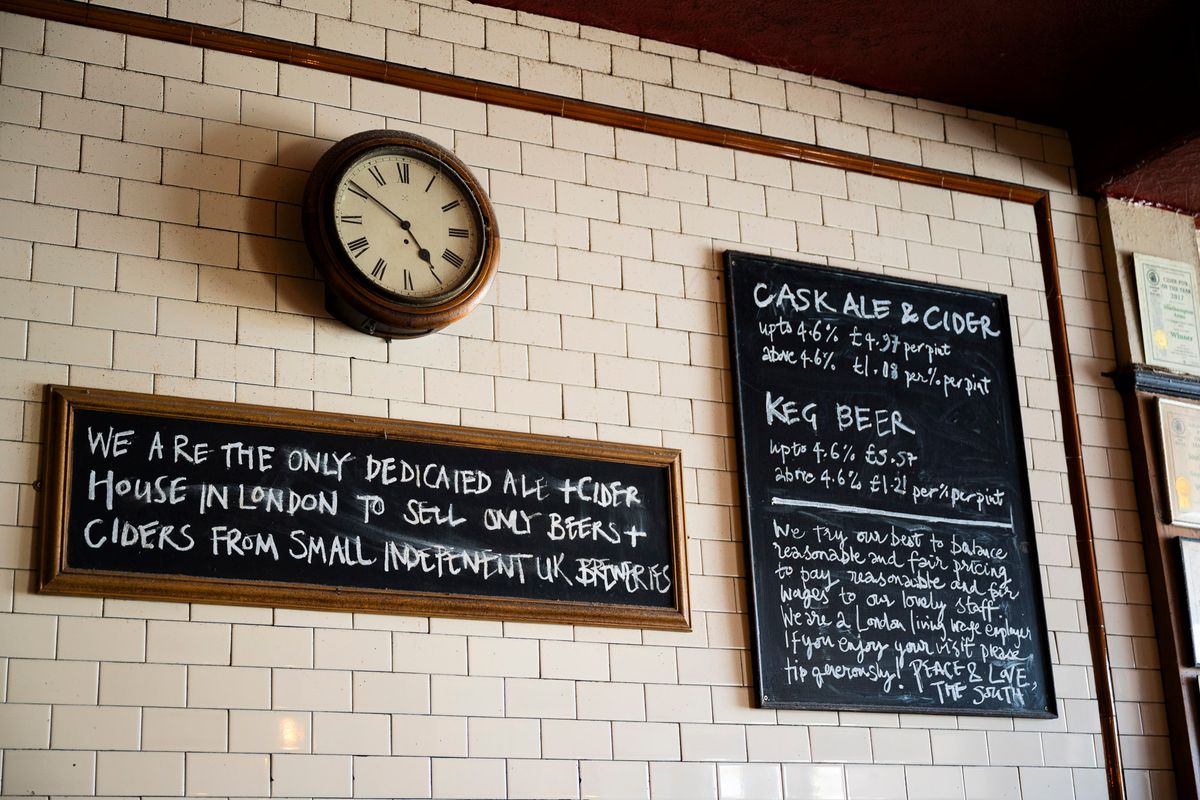 WE ARE THE ONLY DEDICATED ALE + CIDER
HOUSE IN LONDON TO SELL ONLY BEERS +
CIDERS FROM SMALL INDEPENENT UK BREWERIES
CASK ALE & CIDER
upto 4.6% £4.97 per pint
above 4.6% £1.08 per % per pint
KEG BEER
upto 4.6% £5.57
above 4.6% £1.21 per % per pint
We try our best to balance
reasonable and fair pricing
to pay reasonable and fair
wages to our lovely staff.
We are a London living wage employer
If you enjoy your visit please
tip generously! PEACE & LOVE,
THE SOUTH
CIDER PUB
OF THE YEAR
2017
Winner